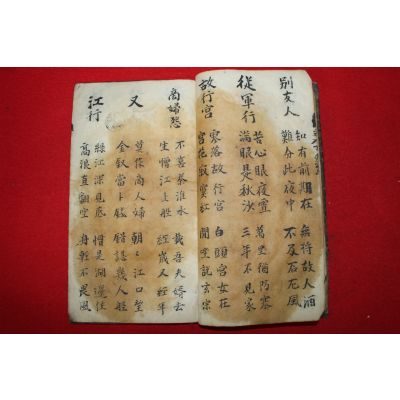 別友人
知有前期在 無將故人酒
難分此夜中 不及石尤風
從軍行
苦心眼夜雪 萬里猶防塞
滿眼是秋沙 三年不見家
故行宮
寥落故行宮 白頭宮女在
宮花寂寞紅 閒坐說玄宗
商婦怨
不喜秦淮水 載吾夫婿去
生憎江上船 經歲又經年
又
莫作商人婦 朝〻江口望
金釵當卜錢 錯認幾人船
江行
江深見底 慣是湖邊住
高浪直翻空 舟輕不畏風